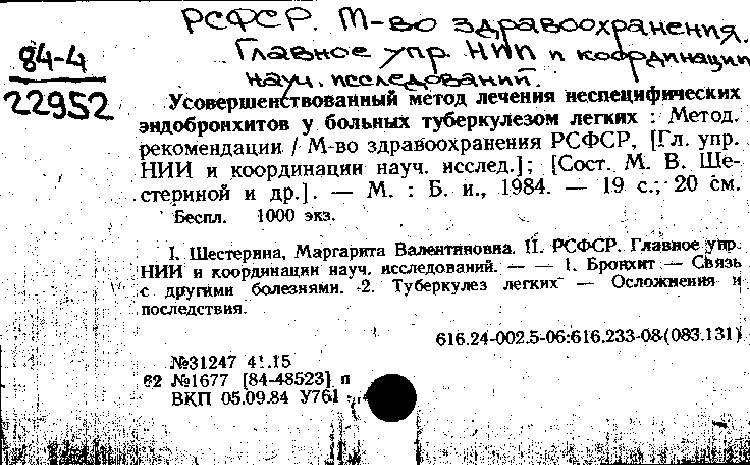 РСФСР. М-во здравоохранения.
Главное упр. НИИ и координации
науч. исследований.
84-4
22952
Усовершенствованный метод лечения неспецифических
эндобронхитов у больных туберкулезом легких : Метод.
рекомендации / М-во здравоохранения РСФСР, [Гл. упр.
НИИ и координации науч. исслед.]; [Сост. М. В. Ше-
стериной и др.]. — М. : Б. и., 1984. — 19 с.; 20 см.
Беспл. 1000 экз.
I. Шестерина, Маргарита Валентиновна. II. РСФСР. Главное упр.
НИИ и координации науч. исследований. — — 1. Бронхит — Связь
с другими болезнями. 2. Туберкулез легких — Осложнения и
последствия.
616.24-002.5-06:616.233-08(083.131)
№31247 41.15
62 №1677 [84-48523] п
ВКП 05.09.84 У761